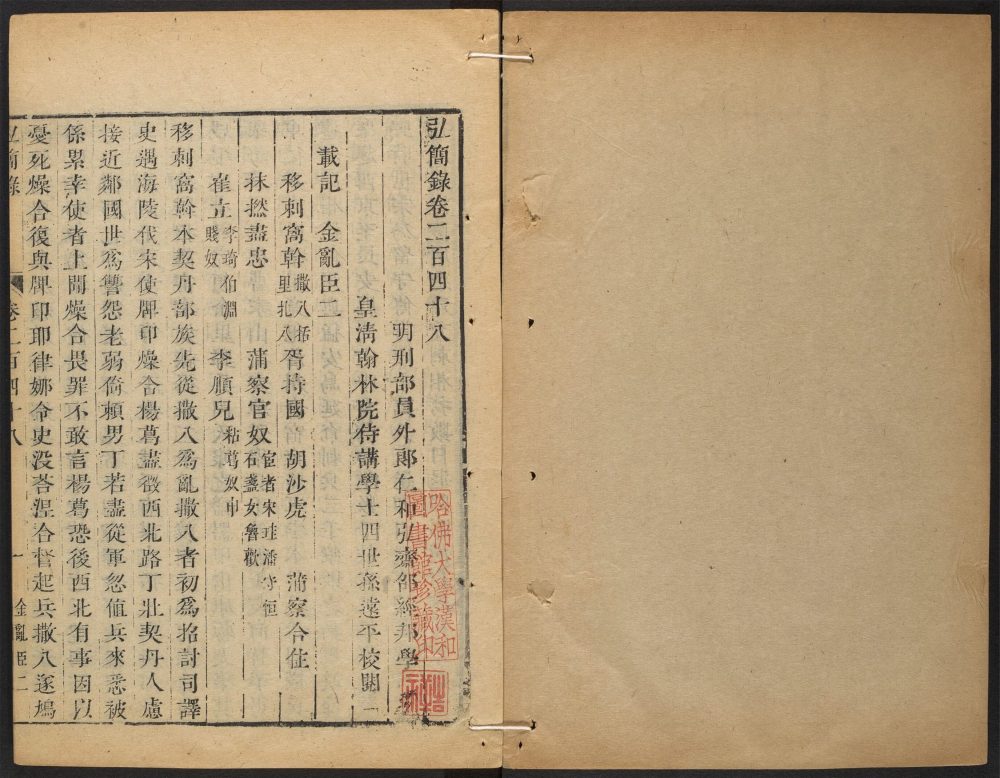 弘簡錄卷二百四十八
明刑部員外郎仁和弘齋邵經邦學
皇清翰林院侍講學士四世孫遠平校閱
載記 金亂臣
移剌窩斡 撒八 括里 扎八 胥持國 胡沙虎 蒲察合住
抹撚盡忠 蒲察官奴 宦者宋珪 潘守恒 石盞女魯歡
崔立 李琦 伯淵 賤奴 李順兒 粘葛奴申
移剌窩斡本契丹部族先從撒八為亂撒八者初為招討司譯
史遇海陵伐宋使牌印燥合楊葛盡徵西北路丁壯契丹人慮
接近鄰國世為讐怨老弱倚賴男丁若盡從軍忽值兵來悉被
係累幸使者上聞燥合畏罪不敢言楊葛恐後西北有事因以
憂死燥合復與牌印耶律娜令史沒荅涅合督起兵撒八遂鴆
弘簡錄 卷二百四十八 一 金亂臣二
哈佛大學漢和
圖書館珍藏印